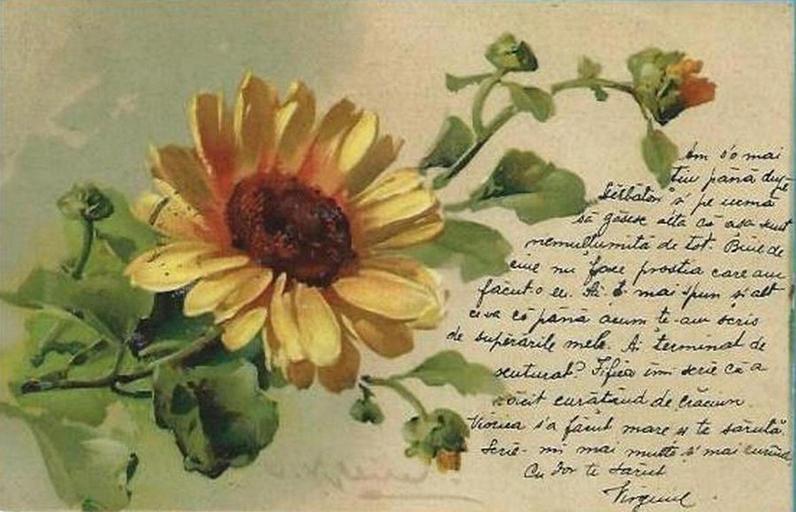 Am s'o mai
țiu până după
Sărbători și pe urmă
să găsesc alta că așa sunt
nemulțumită de tot. Bine de
cine nu face prostia care am
făcut-o eu. Să-ți mai spun și alt
ceva că până acum te-am scris
de supărările mele. Ai terminat de
scuturat? Fifica îmi scrie că a
răcit curățând de Crăciun
Viorica s'a făcut mare și te sărută.
Scrie-mi mai multe și mai curând.
Cu dor te sărut
Virginie